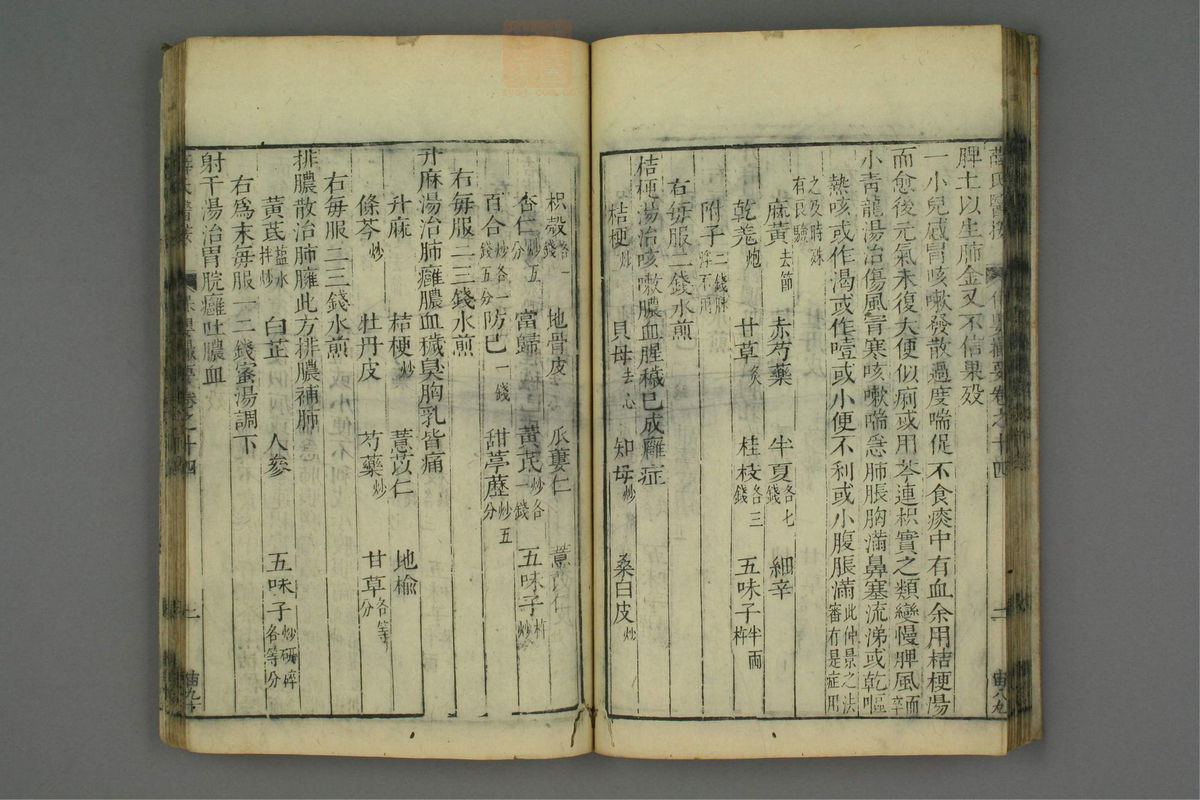 脾土以生肺金又不信果歿
一小兒感冒咳嗽發散過度喘促不食痰中有血余用桔梗湯
而愈後元氣未復大便似痢或用芩連枳實之類變慢脾風而卒
小青龍湯治傷風冐寒咳嗽喘急肺脹胸滿鼻塞流涕或乾嘔
熱咳或作渴或作噎或小便不利或小腹脹滿此仲景之法審有是症用
之及時殊有良驗
麻黃去節 赤芍藥 半夏各七錢 細辛
乾羗炮 甘草炙 桂枝各三錢 五味子半兩杵
附子二錢脉浮不用
右每服二錢水煎
桔梗湯治咳嗽膿血腥穢已成癰症
桔梗炒 貝母去心 知母炒 桑白皮炒
枳殼各一錢 地骨皮 瓜蔞仁 薏苡仁
杏仁炒五分 當歸 黃芪炒各一錢 五味子杵炒
百合炒各一錢五分 防已一錢 甜葶藶炒五分
右每服二三錢水煎
升麻湯治肺癰膿血穢臭胸乳皆痛
升麻 桔梗炒 薏苡仁 地榆
條芩炒 牡丹皮 芍藥炒 甘草各等分
右每服二三錢水煎
排膿散治肺癰此方排膿補肺
黃芪鹽水拌炒 白芷 人參 五味子炒研碎各等分
右爲末每服一二錢蜜湯調下
射干湯治胃脘癰吐膿血